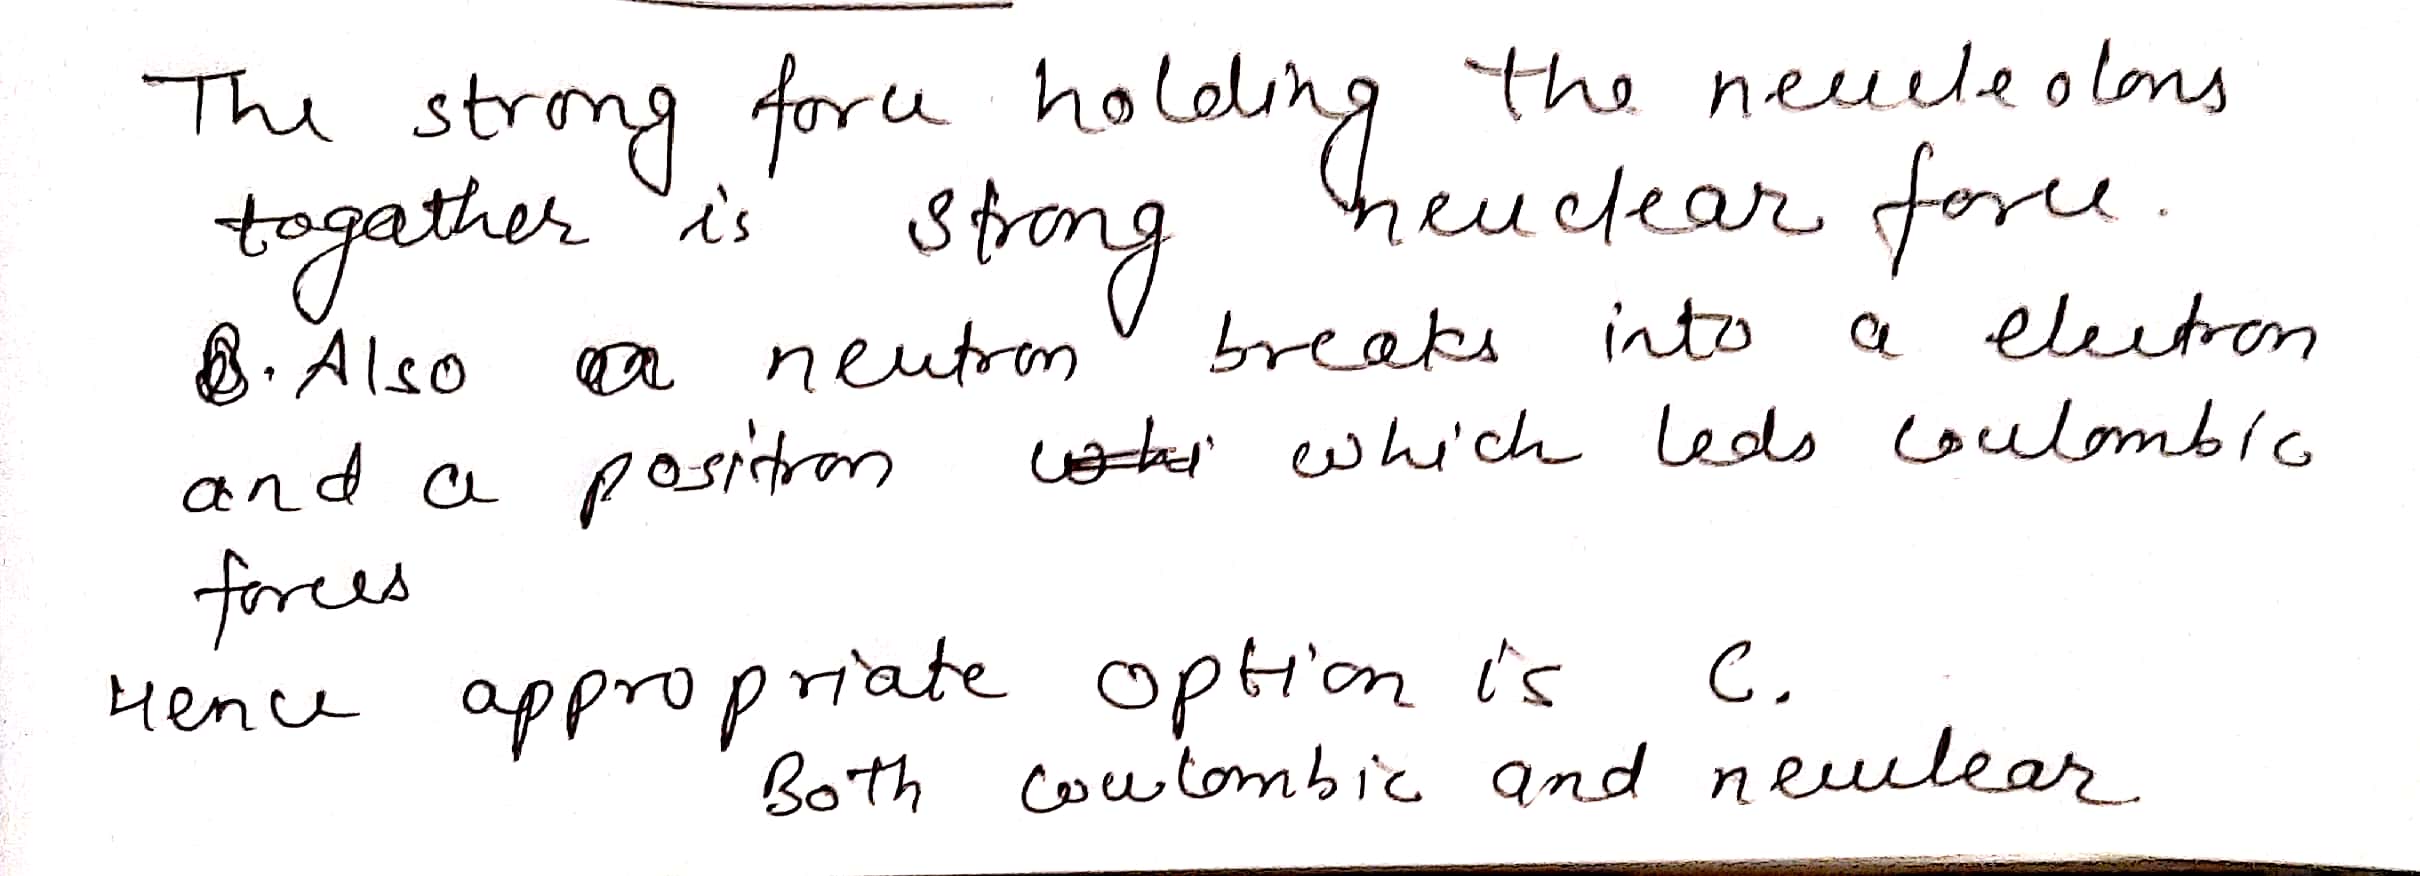 The strong force holding the neucleolons
togather is strong neuclear force.
B. Also a neutron breaks into a electron
and a positron which leds coulombic
forces
Hence appropriate option is C.
Both coulombic and neuclear